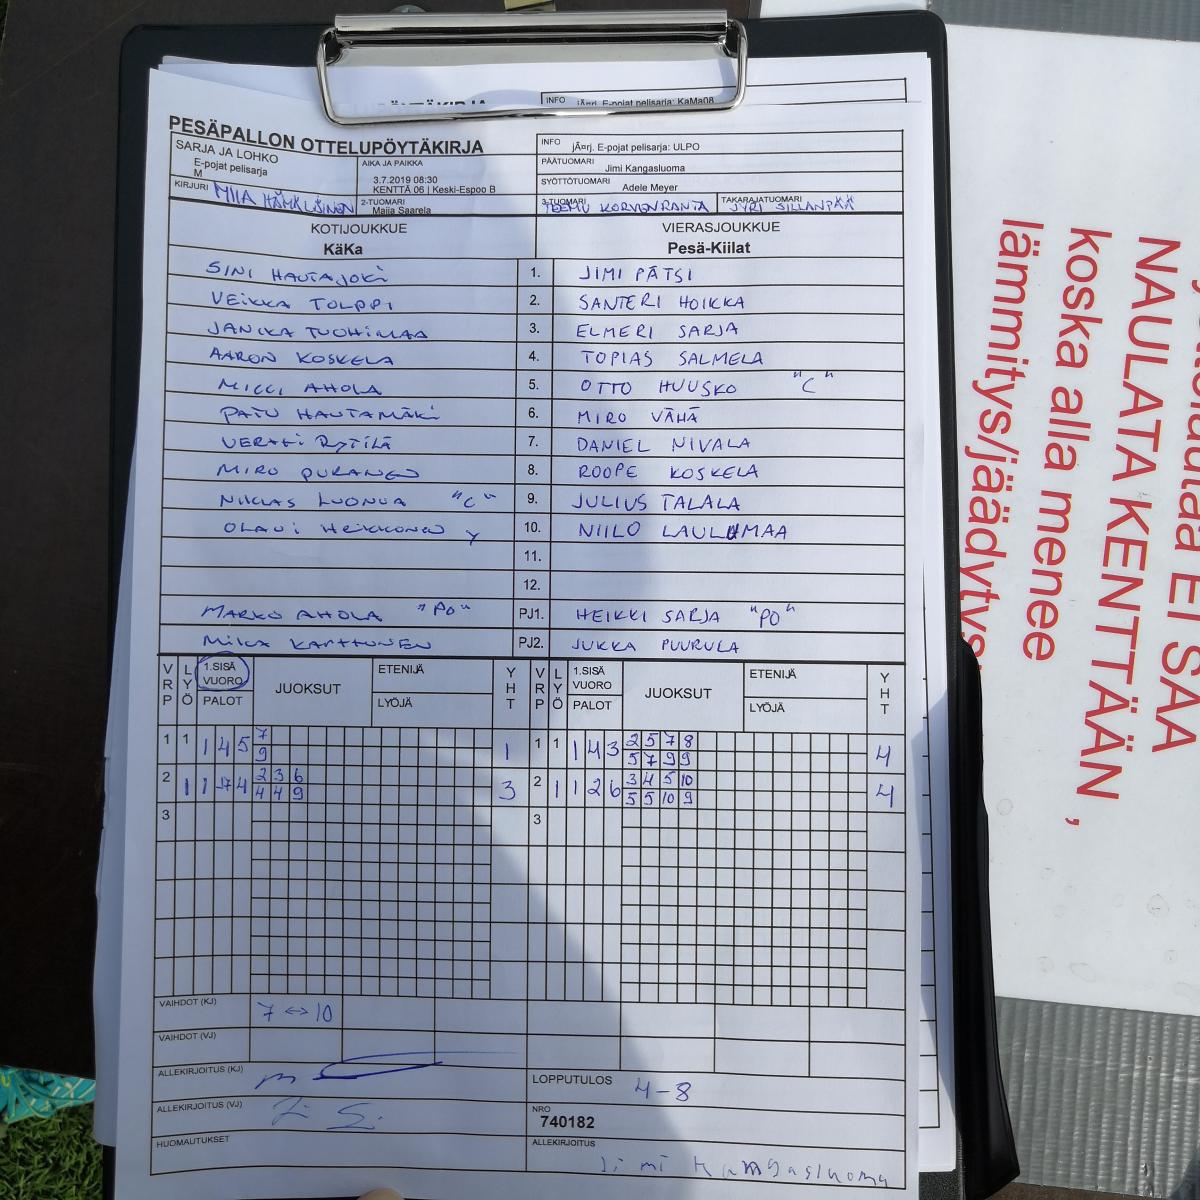 INFO jÃ¤rj. E-pojat pelisarja: KaMa08
PESÄPALLON OTTELUPÖYTÄKIRJA
INFO jÃ¤rj. E-pojat pelisarja: ULPO
SARJA JA LOHKO
E-pojat pelisarja
M
AIKA JA PAIKKA
3.7.2019 08:30
KENTTÄ 06 | Keski-Espoo B
PÄÄTUOMARI
Jimi Kangasluoma
SYÖTTÖTUOMARI
Adele Meyer
KIRJURI MIIA HÄMÄLÄINEN
2-TUOMARI
Maija Saarela
3-TUOMARI
TEEMU KORVENRANTA
TAKARAJATUOMARI
JYRI SILLANPÄÄ
KOTIJOUKKUE
KäKa
VIERASJOUKKUE
Pesä-Kiilat
SINI HAUTAJOKI 1. JIMI PÄTSI
VEIKKA TOLPPI 2. SANTERI HOIKKA
JANIKA TUOHIMAA 3. ELMERI SARJA
AARON KOSKELA 4. TOPIAS SALMELA
MICCI AHOLA 5. OTTO HUUSKO "C"
PATU HAUTAMÄKI 6. MIRO VÄHÄ
RYTILÄ 7. DANIEL NIVALA
MIRO PURANEN 8. ROOPE KOSKELA
NIKLAS LUONUA "C" 9. JULIUS TALALA
OLAVI HEIKKONEN Y 10. NIILO LAULUMAA
11.
12.
MARKO AHOLA "PO" PJ1. HEIKKI SARJA "PO"
MIKA KARTTUNEN PJ2. JUKKA PUURULA
VRP LYÖ 1.SISÄ VUORO PALOT JUOKSUT ETENIJÄ LYÖJÄ YHT VRP LYÖ 1.SISÄ VUORO PALOT JUOKSUT ETENIJÄ LYÖJÄ YHT
1 1 1 4 5 7 1 1 1 1 4 3 2 5 7 8 4
9 5 7 9 9
2 1 1 4 2 3 6 3 2 1 1 2 6 3 4 5 10 4
4 4 9 5 5 10 9
3 3
VAIHDOT (KJ) 7 ↔ 10
VAIHDOT (VJ)
ALLEKIRJOITUS (KJ)
LOPPUTULOS 4-8
ALLEKIRJOITUS (VJ)
NRO
740182
HUOMAUTUKSET
ALLEKIRJOITUS
Jimi Kangasluoma
NAULATA EI SAA
NAULATA KENTTÄÄN,
koska alla menee
lämmitys/jäädytys